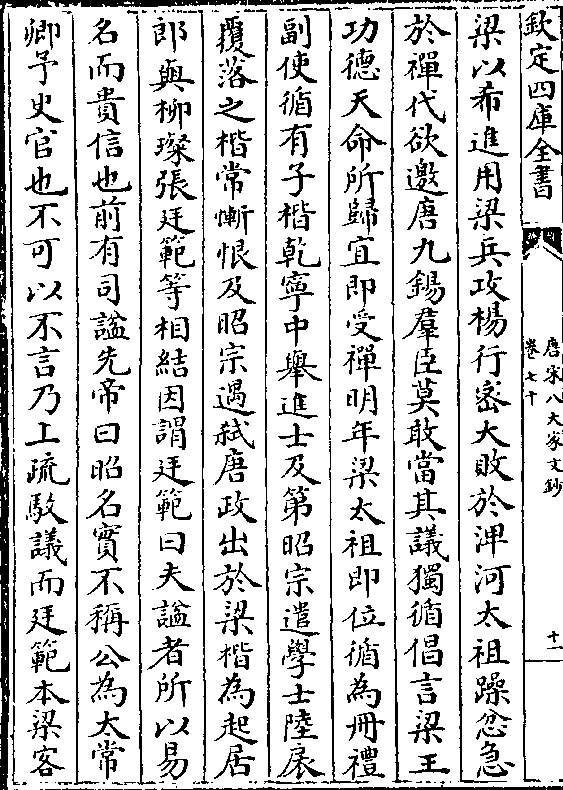 欽定四庫全書
唐宋八大家文鈔
卷七十
十一
梁以希進用梁兵攻楊行密大敗於淠河太祖躁忿急
於禪代欲邀唐九錫羣臣莫敢當其議獨循倡言梁王
功德天命所歸宜即受禪明年梁太祖即位循為冊禮
副使循有子楷乾寧中舉進士及第昭宗遣學士陸扆
覆落之楷常慚恨及昭宗遇弑唐政出於梁楷為起居
郎與柳璨張廷範等相結因謂廷範曰夫諡者所以易
名而貴信也前有司諡先帝曰昭名實不稱公為太常
卿予史官也不可以不言乃上疏駮議而廷範本梁客